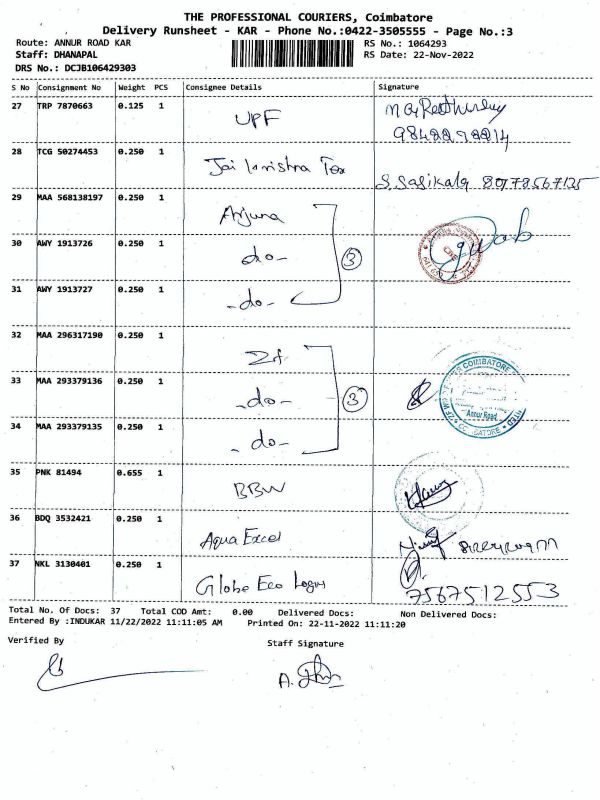 THE PROFESSIONAL COURIERS, Coimbatore
Delivery Runsheet - KAR - Phone No.:0422-3505555 - Page No.:3
Route: ANNUR ROAD KAR RS No.: 1064293
Staff: DHANAPAL RS Date: 22-Nov-2022
DRS No.: DCJB106429303
S No Consignment No Weight PCS Consignee Details Signature
27 TRP 7870663 0.125 1 UPF
28 TCG 50274453 0.250 1 Jai Krishna Tex S. Sasikala
29 MAA 568138197 0.250 1 Arjuna
30 AWY 1913726 0.250 1 -do- 3
31 AWY 1913727 0.250 1 -do-
32 MAA 296317190 0.250 1 Zf
33 MAA 293379136 0.250 1 -do- 3 Annur Road
34 MAA 293379135 0.250 1 -do-
35 PNK 81494 0.655 1 BBW
36 BDQ 3532421 0.250 1 Aqua Excel
37 NKL 3130401 0.250 1 Globe Eco Logus 7567512553
Total No. Of Docs: 37 Total COD Amt: 0.00 Delivered Docs: Non Delivered Docs:
Entered By :INDUKAR 11/22/2022 11:11:05 AM Printed On: 22-11-2022 11:11:20
Verified By Staff Signature